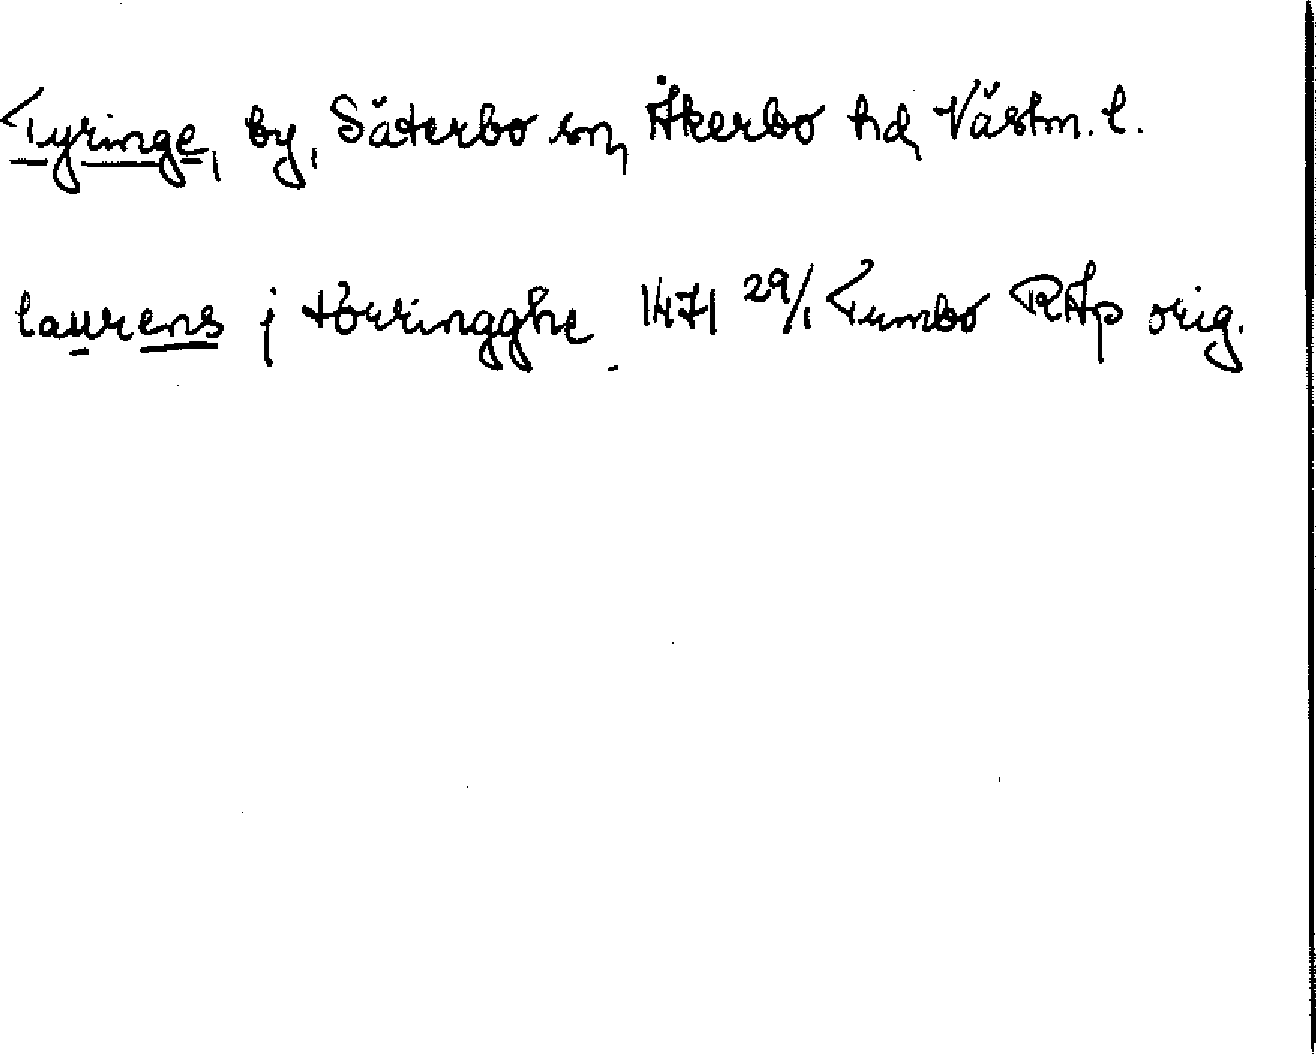 Tyringe, by, Säterbo sn, Åkerbo hd, Västm. l.
laurens j töeringghe 1471 29/1 Tumbo RAp orig.